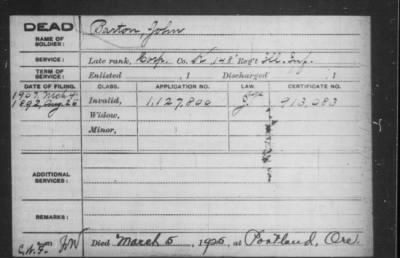 DEAD
NAME OF SOLDIER:
Barton, John
SERVICE:
Late rank, Corp. Co. 148 Reg't Ill. Inf.
TERM OF SERVICE:
Enlisted , 1 Discharged , 1
DATE OF FILING. CLASS. APPLICATION NO. LAW. CERTIFICATE NO.
1892, Aug. 26 Invalid, 1,127,800 913,083
Widow,
Minor,
ADDITIONAL SERVICES:
REMARKS:
Died March 5, 1925, at Portland, Ore.